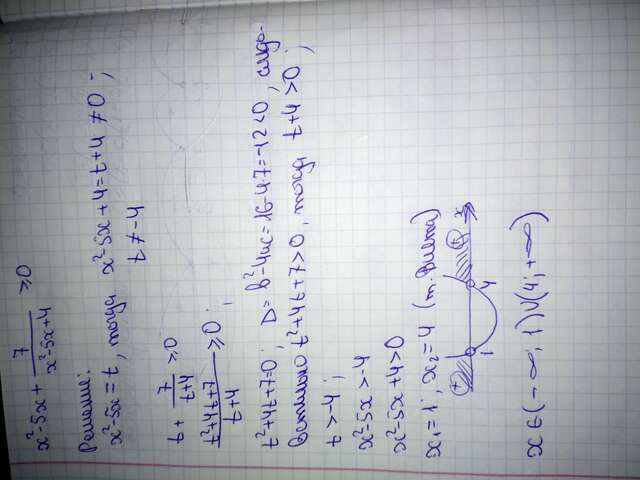 x²-5x + 7/(x²-5x+4) ≥0
Решение:
x²-5x = t, тогда x²-5x+4 = t+4 ≠ 0;
t ≠ -4
t + 7/(t+4) ≥0
(t²+4t+7)/(t+4) ≥0;
t²+4t+7=0; D= b²-4ac = 16-4·7=-12<0, следо-
вательно t²+4t+7>0, тогда t+4>0;
t>-4;
x²-5x>-4
x²-5x+4>0
x₁=1; x₂=4 (т. Виета)
+ 1 4 + x
x∈(-∞; 1)U(4; +∞)